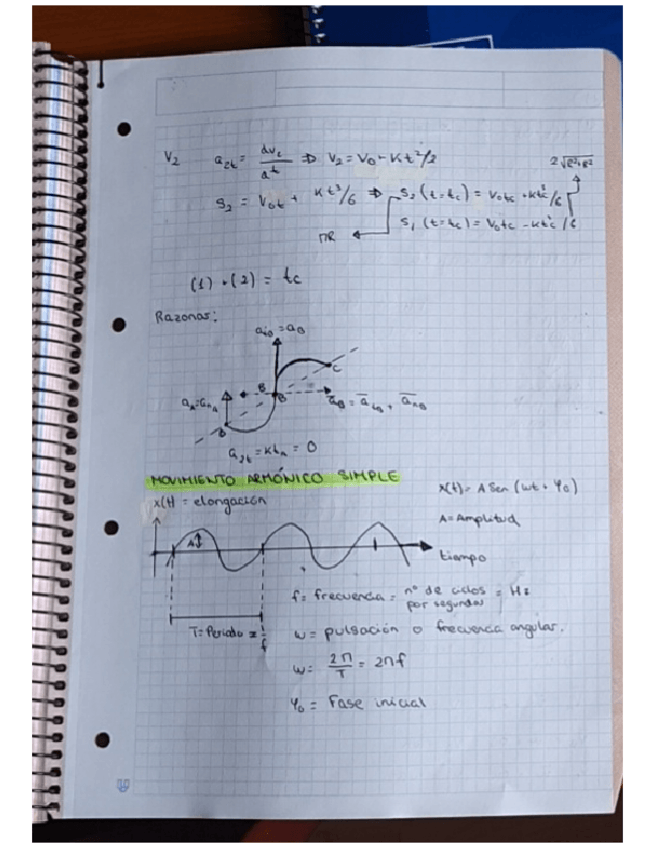 V₂ a₂t = dv₂/dt ⇒ V₂ = V₀ - Kt²/2
S₂ = V₀t + Kt³/6 ⇒ S₂ (t=tc) = V₀tc + Ktc³/6
S₁ (t=tc) = V₀tc - Ktc³/6
πR
(1) + (2) = tc
Razonas:
B
C
B
a₂t = Ktₐ = 0
MOVIMIENTO ARMÓNICO SIMPLE
x(t) = elongación
x(t) = A Sen (ωt + φ₀)
A = Amplitud
A
tiempo
f = frecuencia = nº de ciclos por segundos = Hz
T = Periodo = 1/f
ω = pulsación o frecuencia angular.
ω = 2π/T = 2πf
φ₀ = Fase inicial